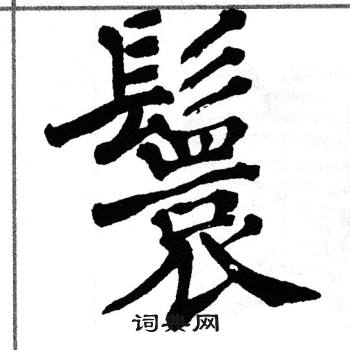 鬟
词典网